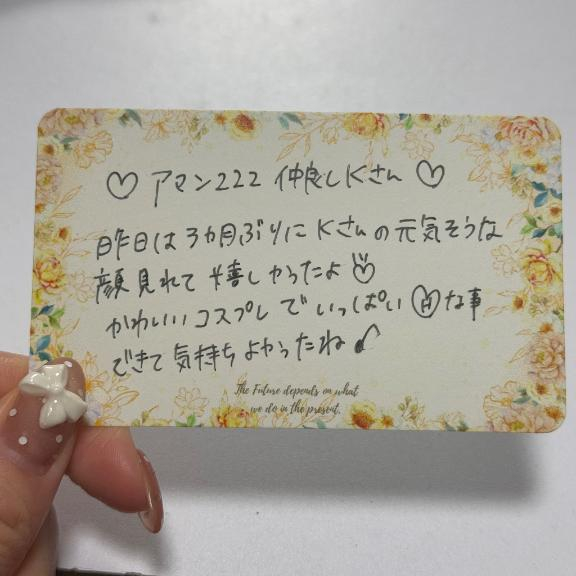 ♡ アマン222 仲良しKさん ♡
昨日は3カ月ぶりにKさんの元気そうな
顔見れて嬉しかったよ♡
かわいいコスプレでいっぱいHな事
できて気持ちよかったね♪
The Future depends on what
we do in the present.